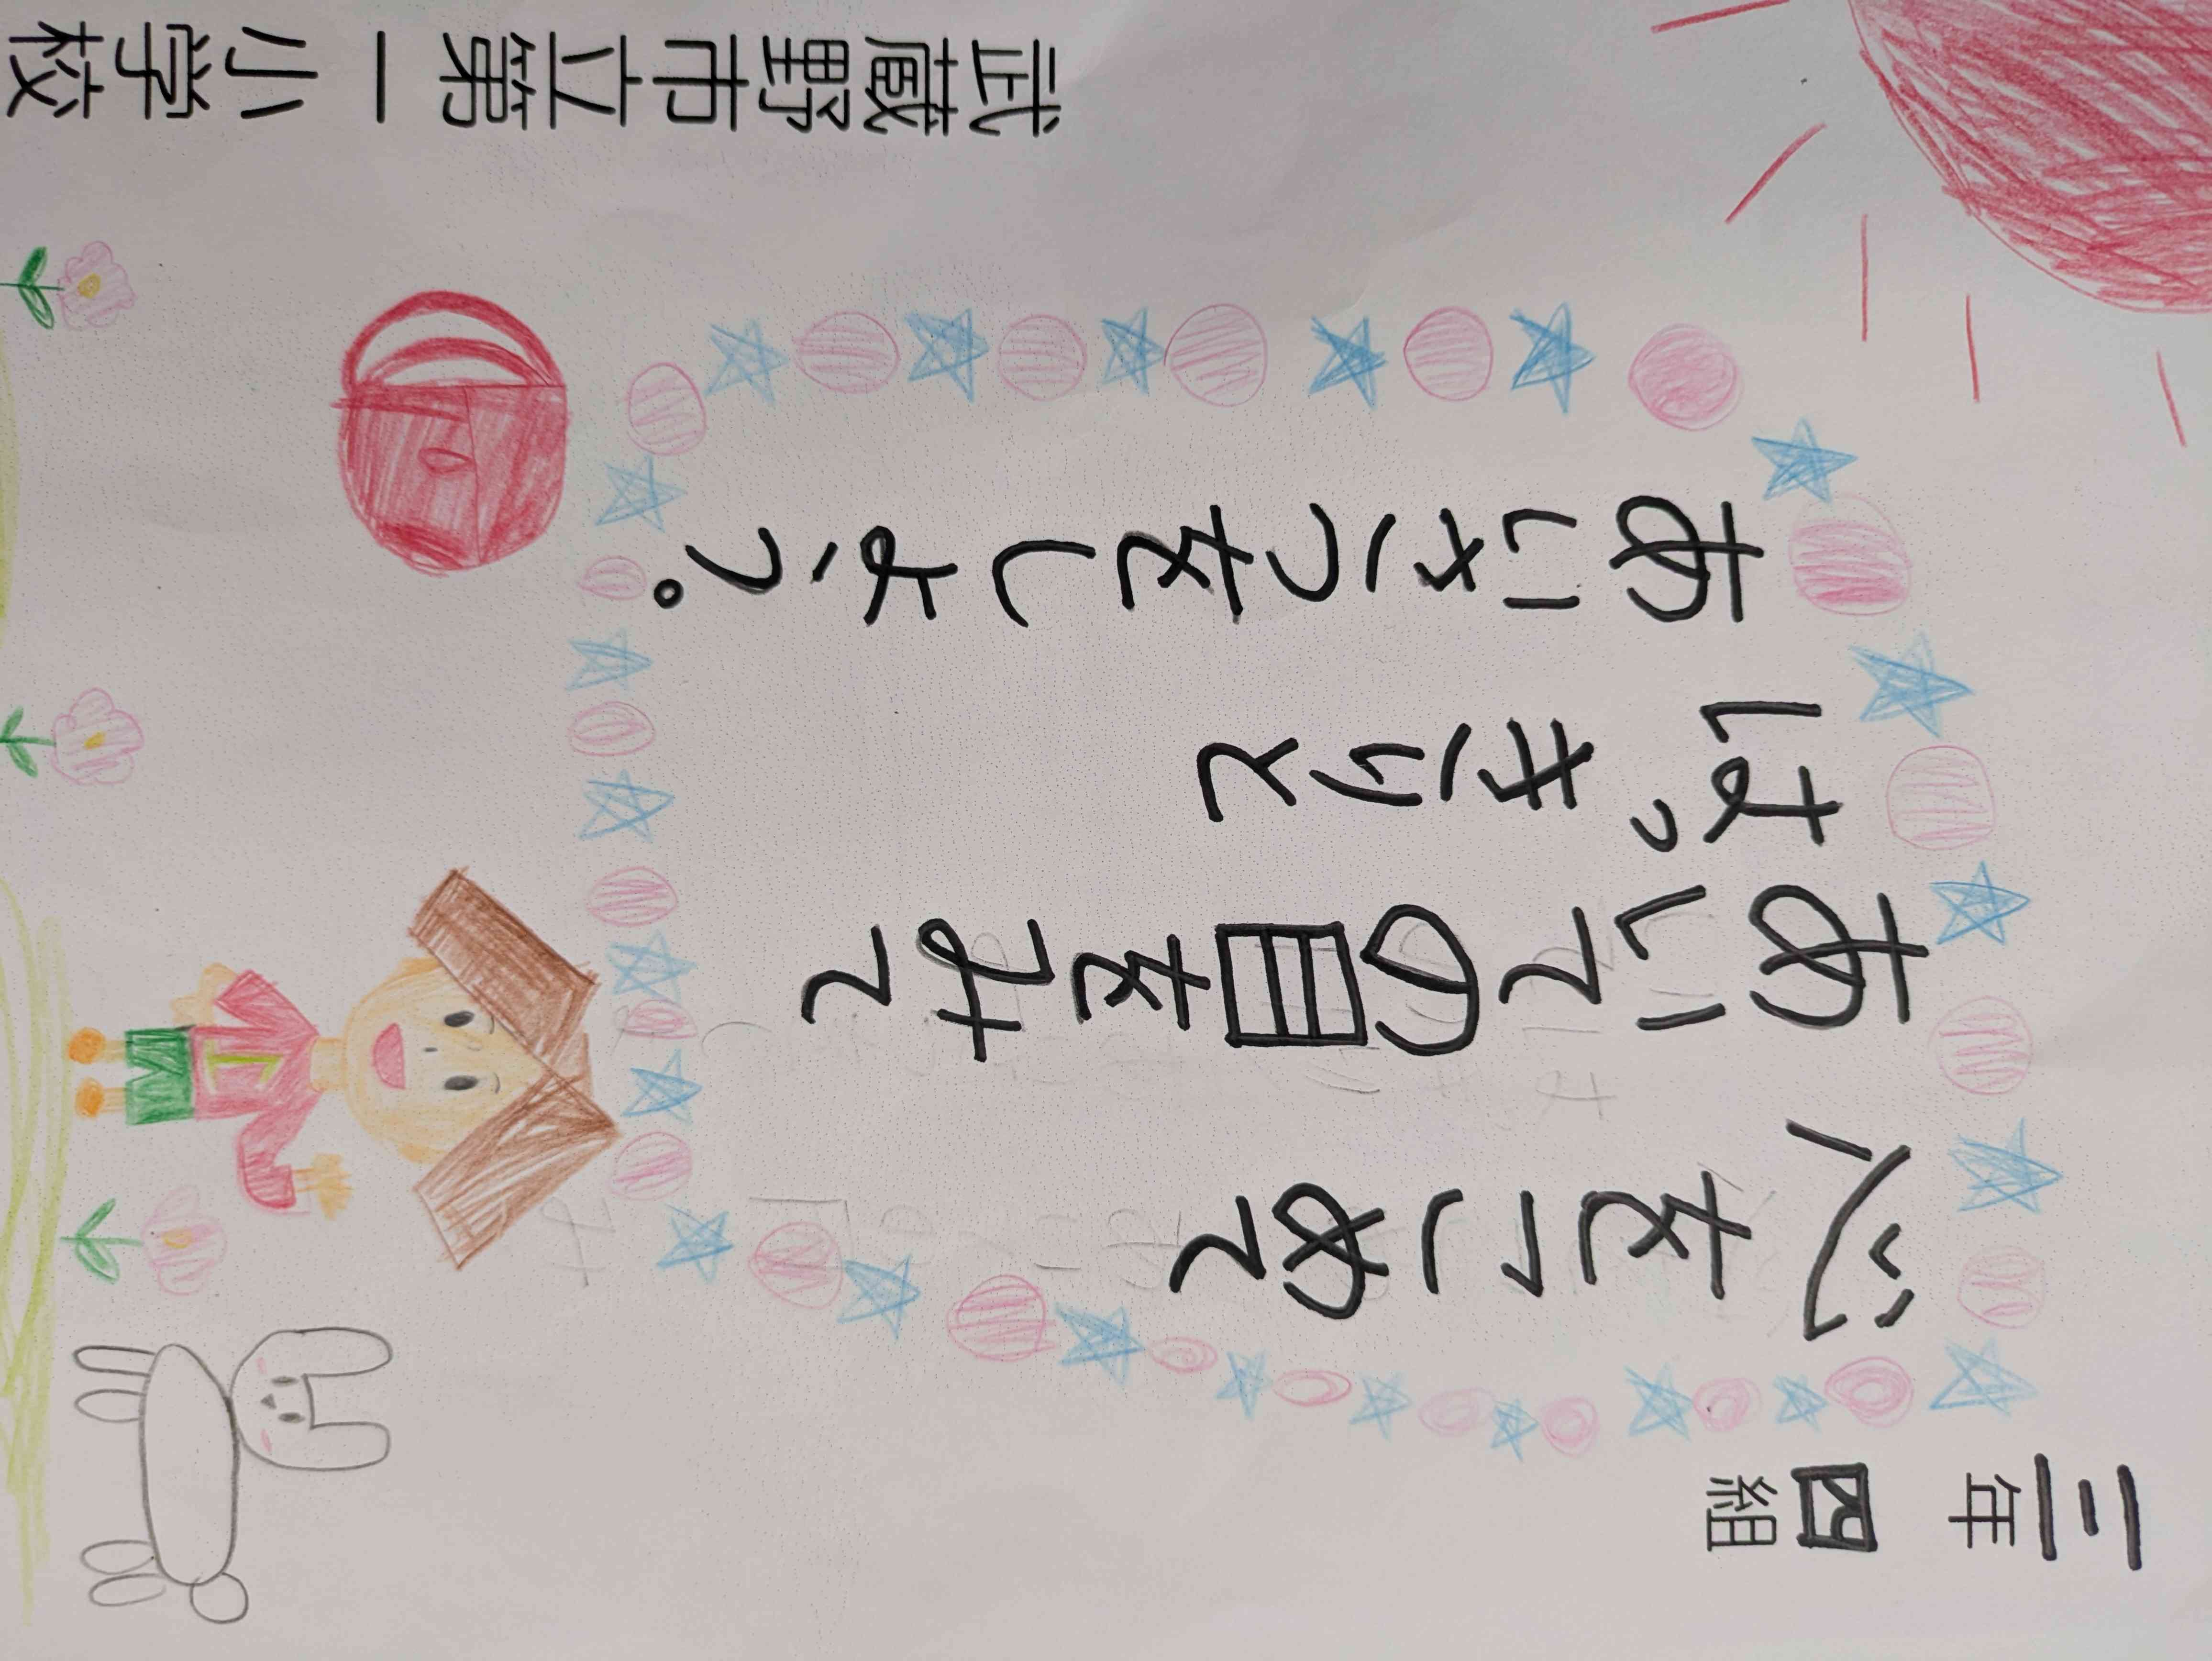 三年四組
心をこめて
あいての目をみて
はっきりと
あいさつをしよう。
武蔵野市立第一小学校